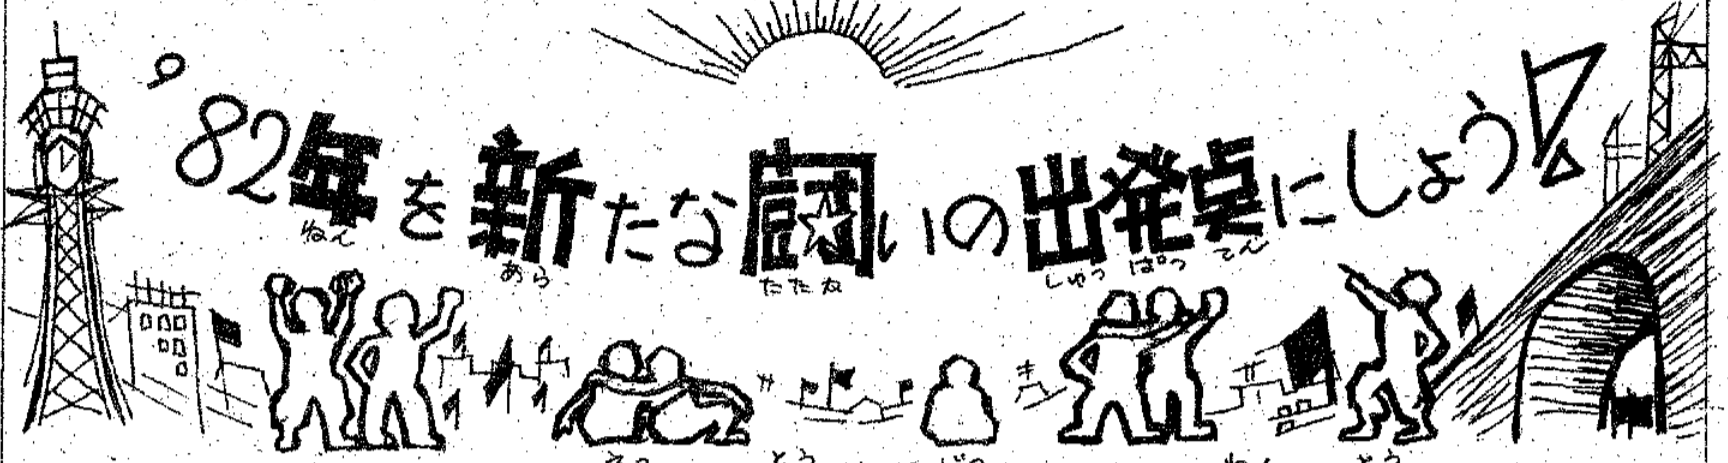 '82年を新たな闘いの出発点にしよう!
ねん あら たたか しゅっ ぱつ てん